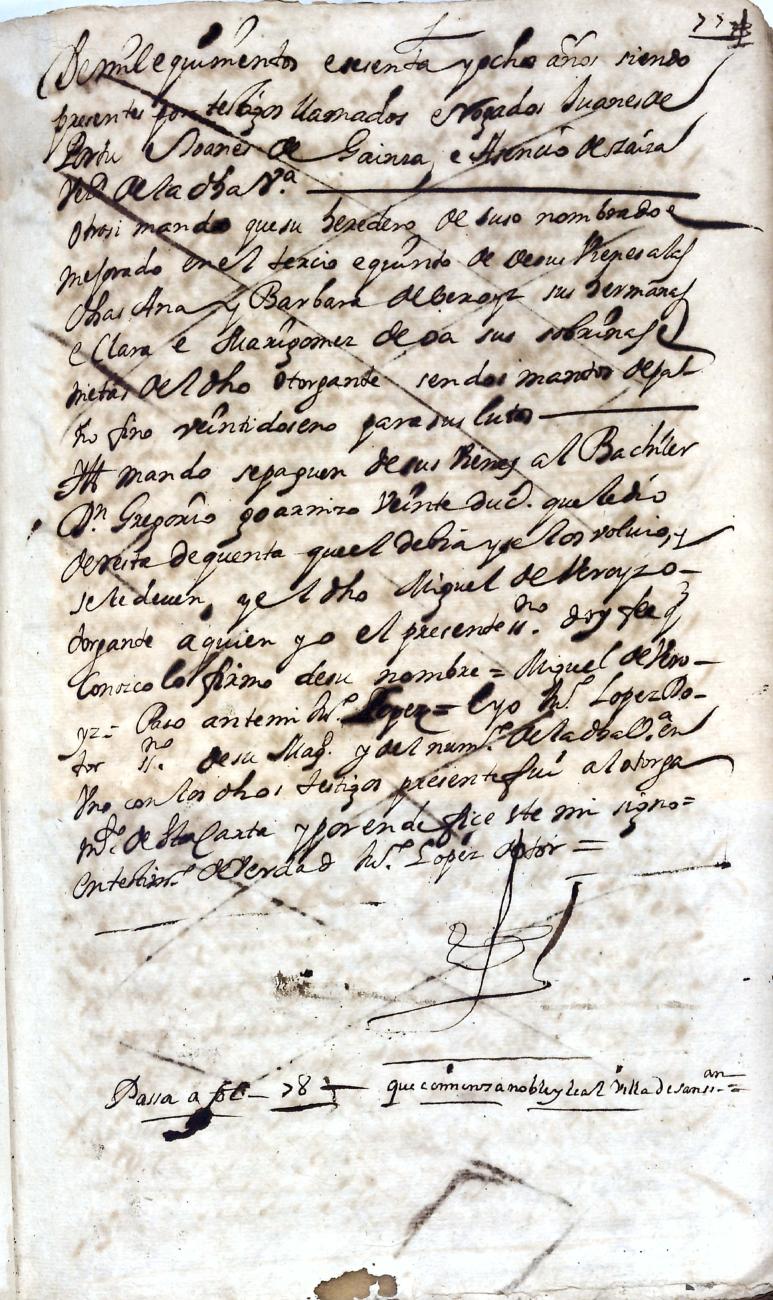 77
De mil e quinientos e sesenta y ocho años siendo
presentes por testigos llamados e Rogados Juanes de
Portu e Joanes de Gainza, e Asencio de
Vº de la dha Vª
Otrosi mando que su heredero de suso nombrado e
mejorado en el tercio e quinto de de sus Vienes a las
dhas Ana y Barbara de beroyz sus hermanas
e Clara e Marigomez de oa sus sobrinas e
nietas del dho otorgante sendos mantos de pa
ño fino veintidoseno para sus lutos
Itt mando se paguen de sus Vienes al Bachiller
Dn Gregorio goarnizo Veinte ducd. que le dio
de resta de quenta que el debia y se los volvio, y
se le deuen, y el dho Miguel de Veroyz o-
torgante a quien yo el presente ssno doy fee q
Conozco lo firmo de su nombre = Miguel de Vero-
yz = Paso ante mi Lopez = E yo Lopez Do-
tor ssno de su Magd. y del numº de la dha Vª en
Vno con los dhos testigos presente fui al otorga
mtº de sta Carta y por ende fice este mi signo =
en testimº de Verdad Lopez dotor =
Passa a fol- 78 que comienza noble y leal Villa de san ssan =